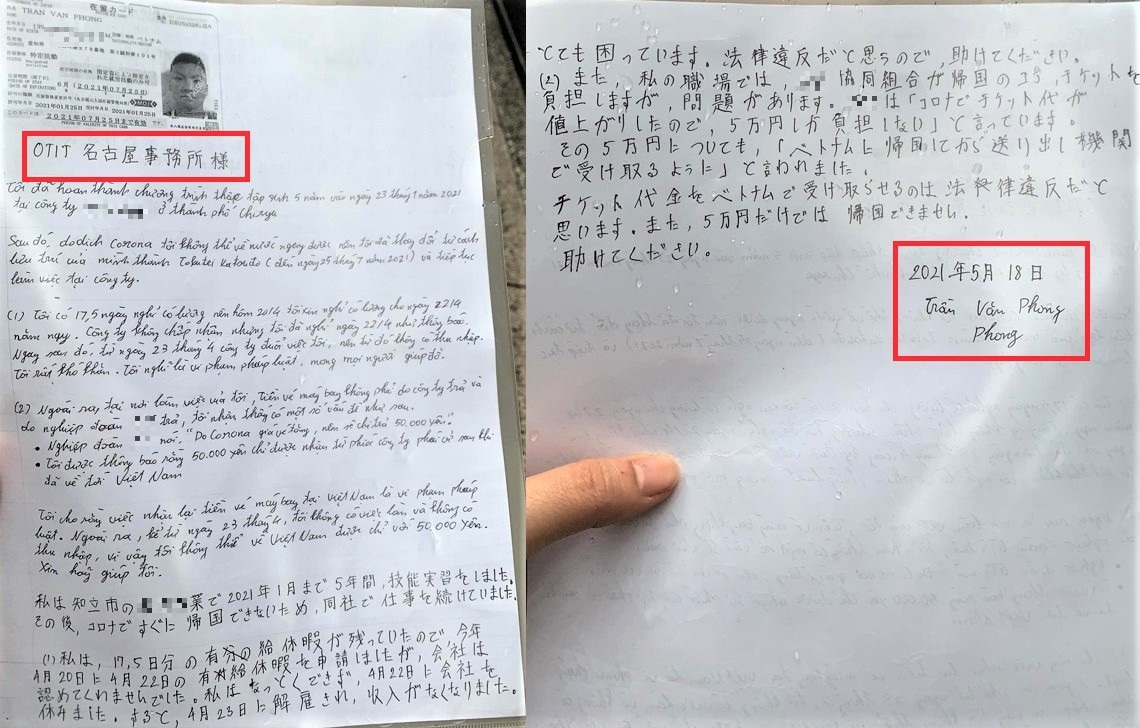 在留カード
TRAN VAN PHONG
2021年07月25日まで有効
PERIOD OF VALIDITY OF THIS CARD
OTIT 名古屋事務所 様
Tôi đã hoàn thành chương trình thập tập sinh 5 năm vào ngày 23 tháng 1 năm 2021
tại công ty ở thành phố Chiryu
Sau đó, do dịch Corona tôi không thể về nước ngay được nên tôi đã thay đổi tư cách
lưu trú của mình thành Tokutei katsudo (đến ngày 25 tháng 7 năm 2021) và tiếp tục
làm việc tại công ty.
(1) Tôi có 17,5 ngày nghỉ có lương nên hôm 20/4 tôi xin nghỉ có lương cho ngày 22/4
năm nay. Công ty không chấp nhận nhưng tôi đã nghỉ ngày 22/4 như thông báo.
Ngay sau đó, từ ngày 23 tháng 4 công ty đuổi việc tôi, nên từ đó không có thu nhập.
Tôi rất khó khăn. Tôi nghĩ là vi phạm pháp luật, mong mọi người giúp đỡ.
(2) Ngoài ra, tại nơi làm việc của tôi, tiền vé máy bay không phải do công ty trả và
do nghiệp đoàn trả, tôi nhận thấy có một số vấn đề như sau.
• Nghiệp đoàn nói: "Do Corona giá vé tăng, nên sẽ chỉ trả 50.000 yên."
• Tôi được thông báo rằng 50.000 yên chỉ được nhận từ phía công ty phái cử sau khi
đã về tới Việt Nam
Tôi cho rằng việc nhận lại tiền vé máy bay tại Việt Nam là vi phạm pháp
luật. Ngoài ra, kể từ ngày 23 tháng 4, tôi không có việc làm và không có
thu nhập, vì vậy tôi không thể về Việt Nam được chỉ với 50.000 yên.
Xin hãy giúp tôi.
私は知立市の 業で2021年1月まで5年間,技能実習をしました。
その後,コロナですぐに帰国できないため,同社で仕事を続けていました。
(1)私は,17,5日分の有給休暇が残っていたので,今年
4月20日に4月22日の有給休暇を申請しましたが,会社は
認めてくれませんでした。私はなっとくできず,4月22日に会社を
休みました。すると,4月23日に解雇され,収入がなくなりました。
とても困っています。法律違反だと思うので,助けてください。
(2)また,私の職場では, 協同組合が帰国の チケットを
負担しますが,問題があります。 は「コロナでチケット代が
値上がりしたので,5万円しか負担しない」と言っています。
その5万円についても,「ベトナムに帰国してから送り出し機関
で受け取るように」と言われました。
チケット代金をベトナムで受け取らせるのは法律違反だと
思います。また,5万円だけでは帰国できません。
助けてください。
2021年5月18日
Trần Văn Phong
Phong